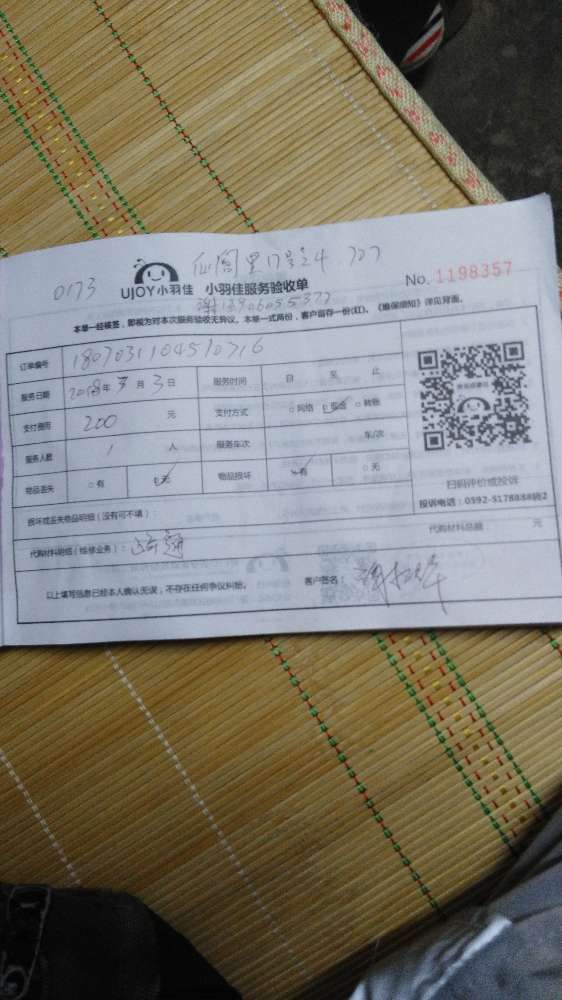 0173
仙阁里17号之4.707
UJOY小羽佳 小羽佳服务验收单 No. 1198357
本单一经核签，即视为对本次服务验收无异议。本单一式两份，客户留存一份(红)、《维保须知》详见背面。
订单编号
服务日期 2018年 月 3 日 服务时间 自 至 止
支付费用 200 元 支付方式 □网络 □现金 □转账
服务人数 1 人 服务车次 车/次
物品丢失 □有 □无 物品损坏 □有 □无
扫码评价或投诉
投诉电话：0592-5178888转2
损坏或丢失物品明细（没有可不填）：
代购材料明细（维修业务）： 代购材料总额 元
以上填写信息已经本人确认无误，不存在任何争议纠纷。 客户签名：